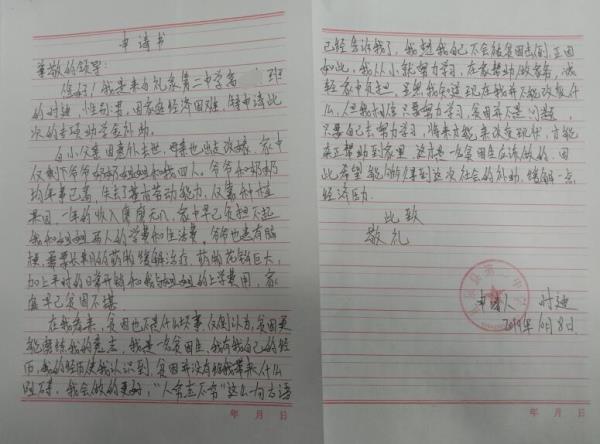 申请书
尊敬的领导:
您好!我是来自礼泉第二中学高 班
的时迪,性别男,因家庭经济困难,特申请此
次的专项助学金补助。
自小父亲因意外去世,母亲也远走改嫁,家中
仅剩下爷爷奶奶姐姐和我四人。爷爷和奶奶
均年事已高,失去了劳动能力,仅靠种植
果园,一年的收入寥寥无几,家中早已负担不起
我和姐姐两人的学费和生活费。爷爷也患有脑
梗,需要长期的药物缓解治疗,药物花销巨大,
加上平时的日常开销和我与姐姐的上学费用,家
庭早已贫困不堪
在我看来,贫困也不是什么坏事,反倒认为,贫困更
能磨练我的意志,我是一名贫困生,我有我自己的经
历,我的经历使我认识到,贫困并没有给我带来什么
阻碍,我会做的更好,"人穷志不穷"这么一句古语
已经告诉我了,我想我自己不会被贫困击倒,正因
如此,我从小就努力学习,在家帮助做家务,减
轻家中负担,虽然我知道现在我并不能改变什
么,但我相信只要努力学习,贫困并不是问题,
只要自己去努力学习,将来才能来改变现状,才能
真正帮助到家里,这才是一名贫困生应该做的。因
此希望能够得到这次社会的补助,缓解一点
经济压力。
此致
敬礼
申请人 时迪
2019年10月8日
年 月 日
年 月 日